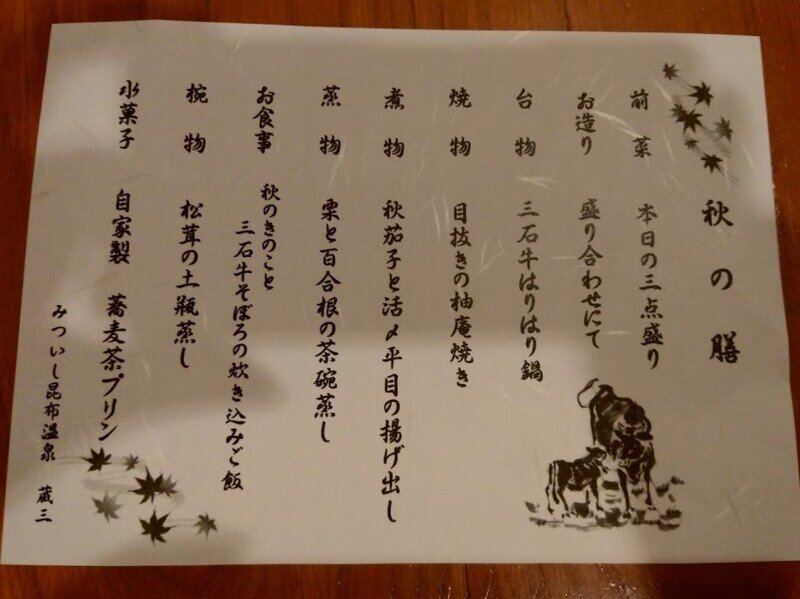 秋の膳
前菜 本日の三点盛り
お造り 盛り合わせにて
台物 三石牛はりはり鍋
焼物 目抜きの柚庵焼き
煮物 秋茄子と活〆平目の揚げ出し
蒸物 栗と百合根の茶碗蒸し
お食事 秋のきのこと
三石牛そぼろの炊き込みご飯
椀物 松茸の土瓶蒸し
水菓子 自家製 蕎麦茶プリン
みついし昆布温泉 蔵三